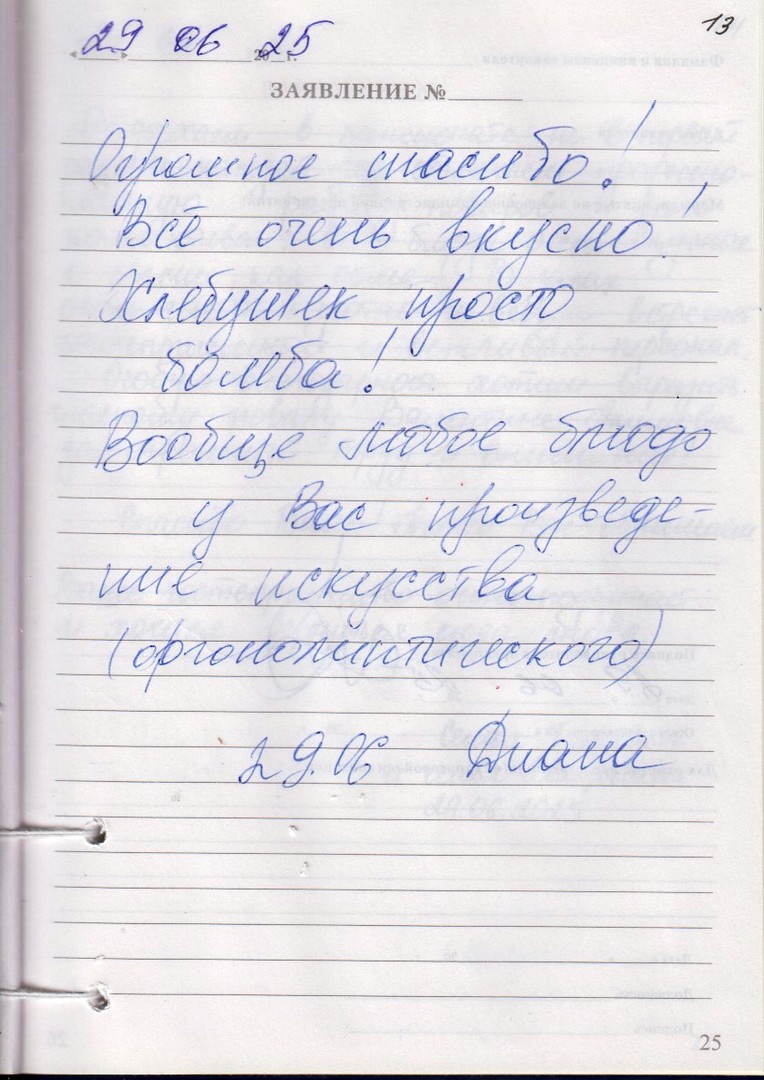 13
29 06 2025 г.
ЗАЯВЛЕНИЕ №
Огромное спасибо!
Всё очень вкусно!
Хлебушек просто
бомба!
Вообще любое блюдо
у Вас произведе-
ние искусства
(органолептического)
29.06 Диана
25